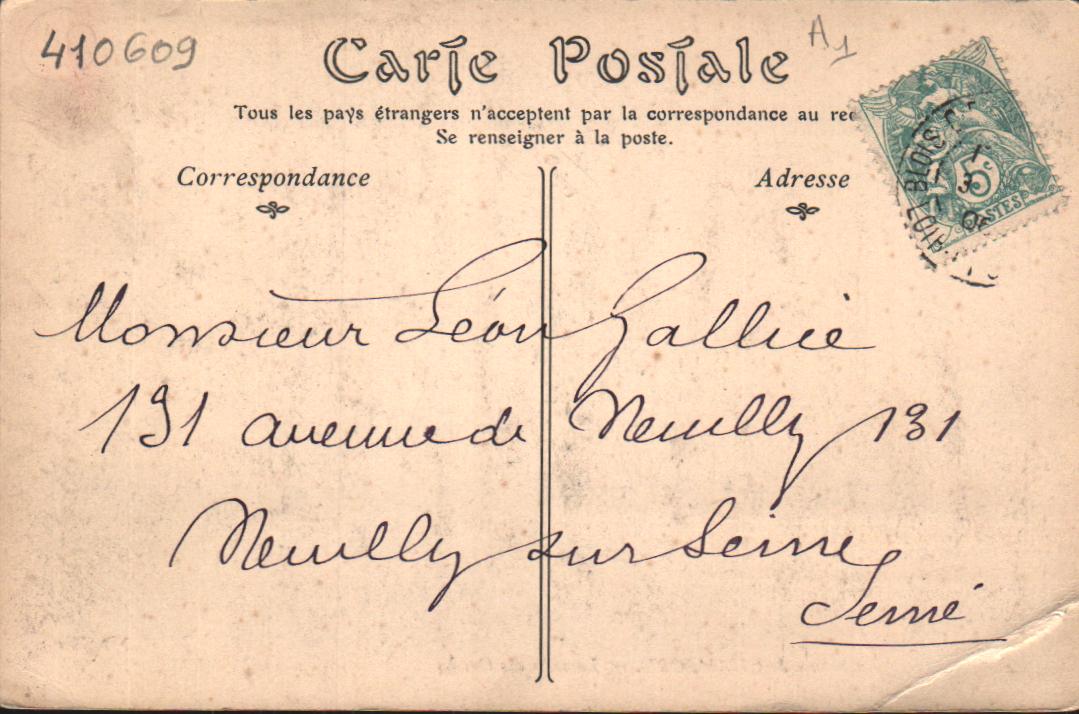 410609
A1
Carte Postale
Tous les pays étrangers n'acceptent par la correspondance au rec
Se renseigner à la poste.
Correspondance
Adresse
BLOIS
5c
POSTES
Monsieur Léon Gallicé
131 avenue de Neuilly 131
Neuilly sur Seine
Seine